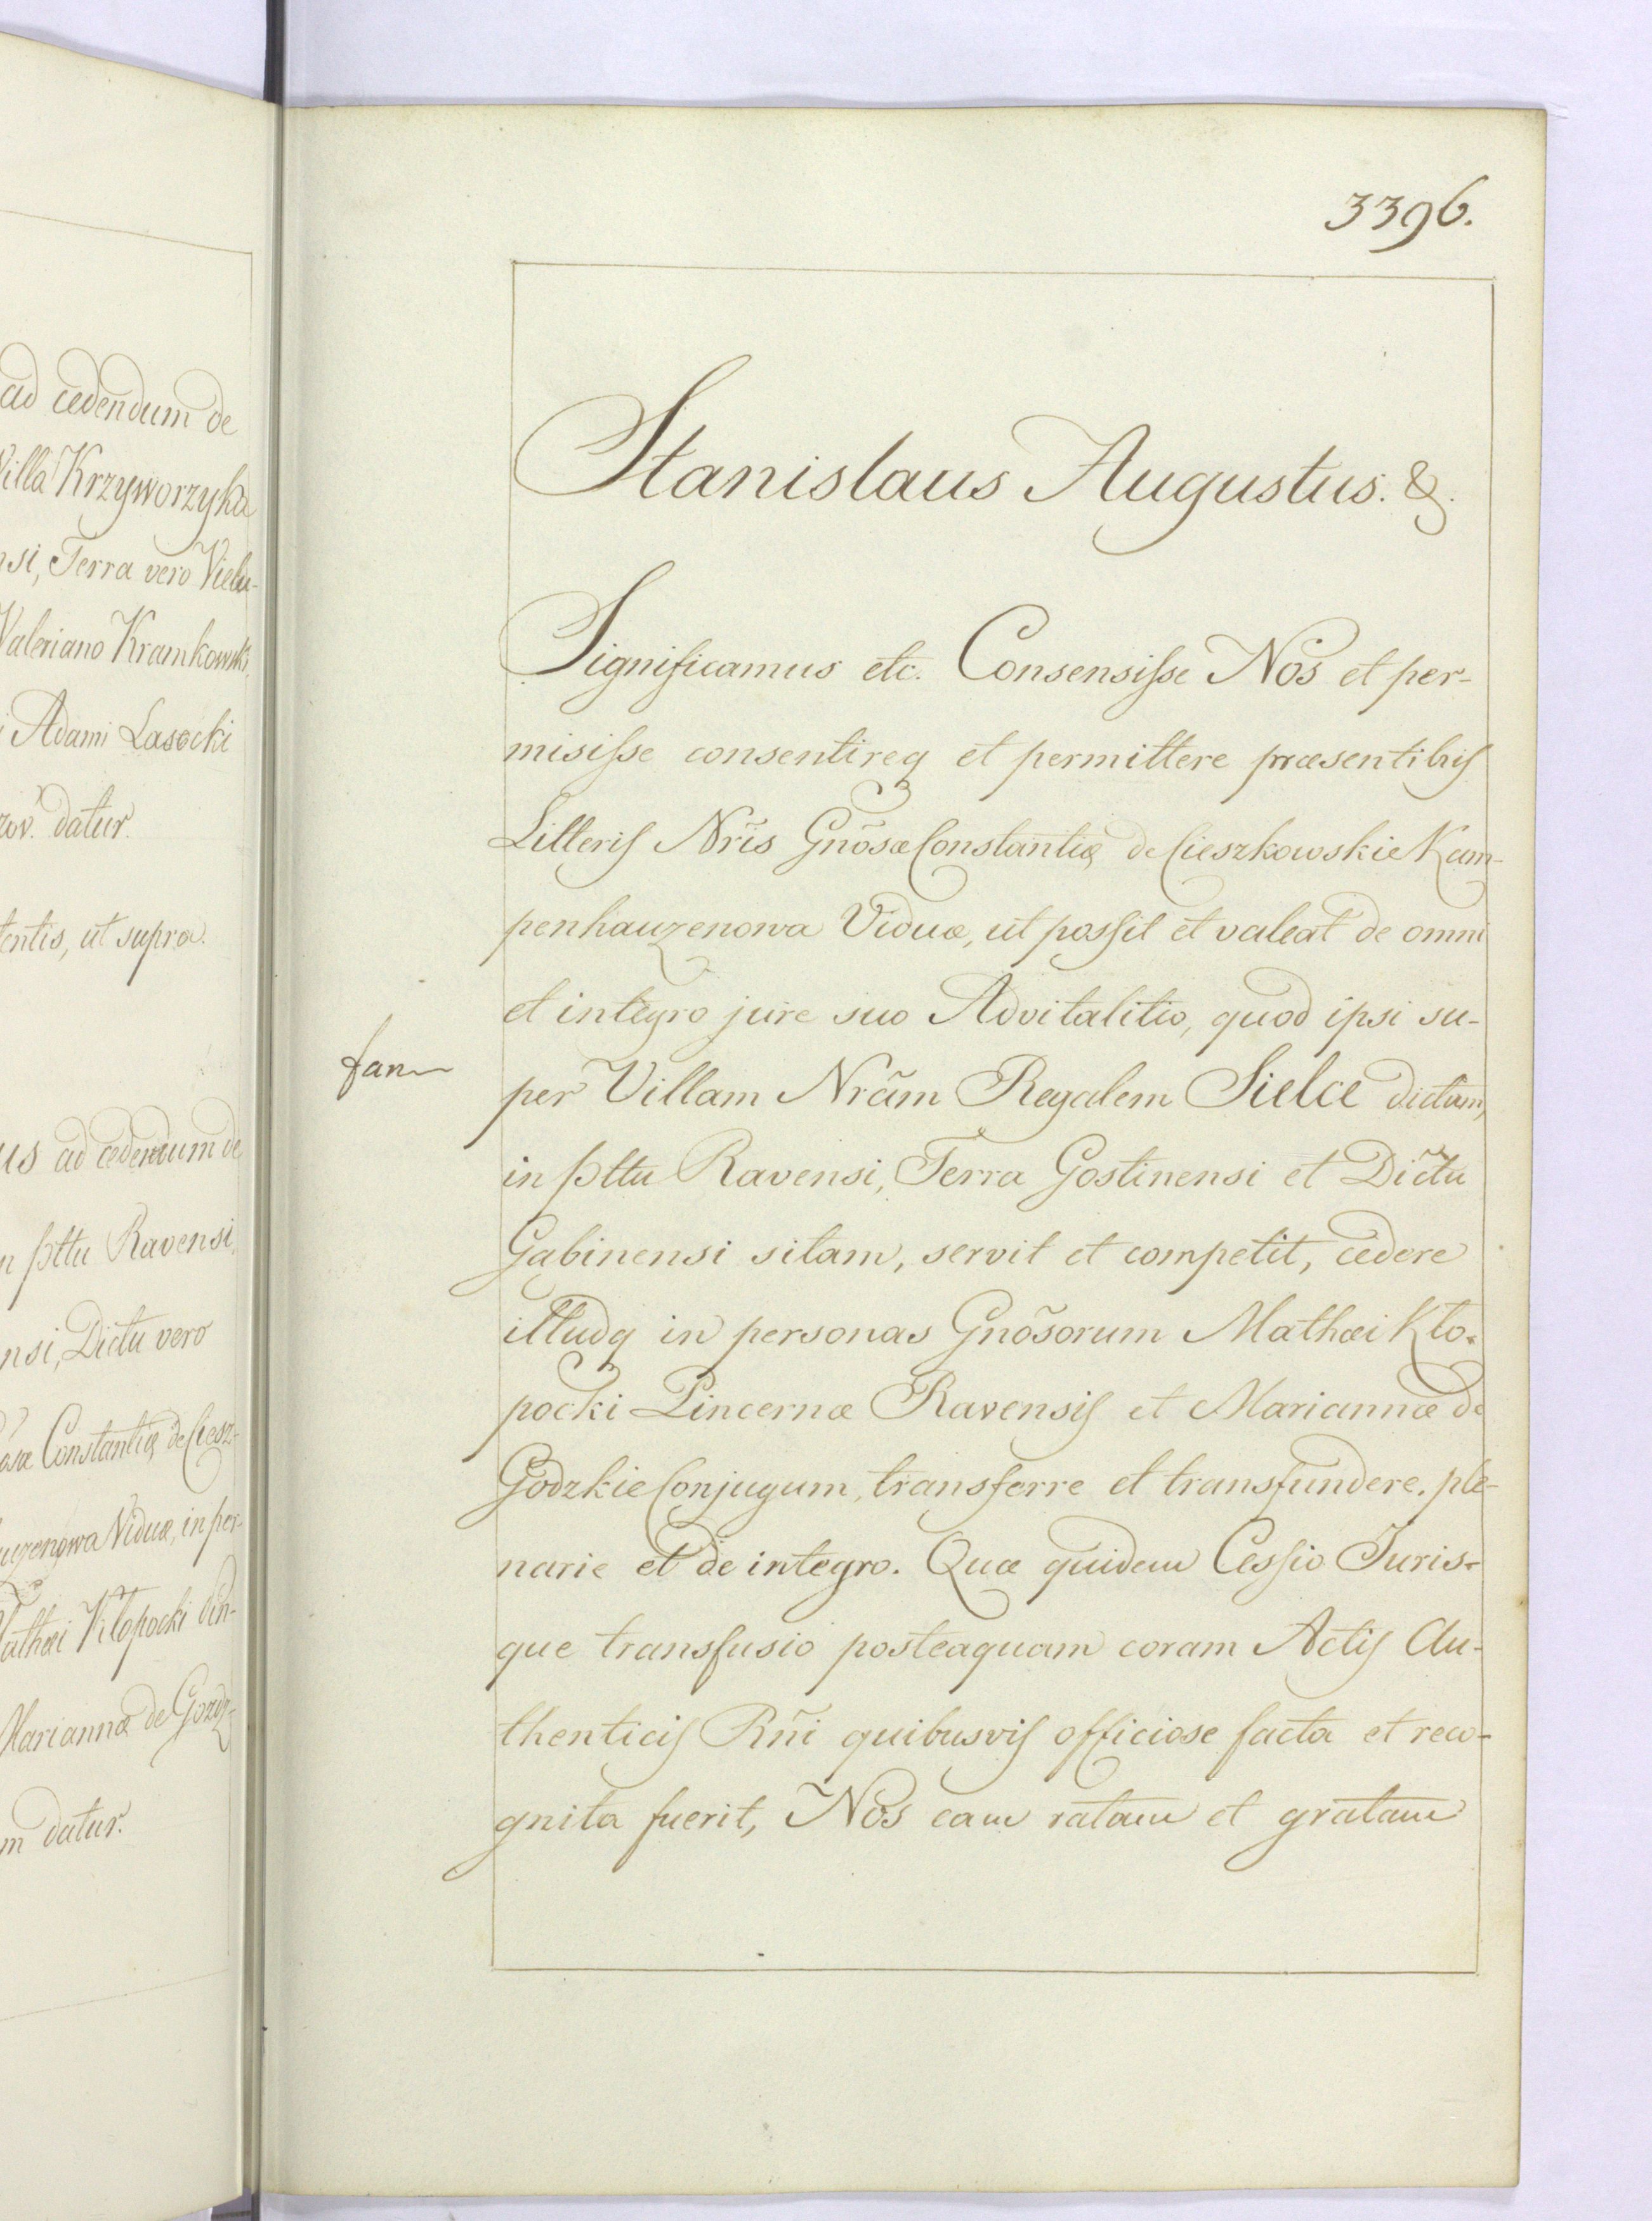 ad cedendum de
Villa Krzyworzyka
nsi, Terra vero Vielu-
Valeriano Kramkowski
i Adami Lasocki
zov. datur.
tentis, ut supra.
us ad cedendum de
n Pttu Ravensi,
nsi, Dictu vero
osæ Constantiæ de Ciesz-
uzenowa Viduæ, in per-
Mathæi Kłopocki Pin-
Mariannæ de Gozdz-
m datur.
3396.
Stanislaus Augustus. &.
Significamus etc. Consensisse Nos et per-
misisse consentireq et permittere præsentibus
Litteris Nr̃is Gnõsæ Constantiæ de Cieszkowskie Kam-
penhauzenowa Viduæ, ut possit et valeat de omni
et integro jure suo Advitalitio, quod ipsi su-
per Villam Nrãm Regalem Sielce dictam,
in Pttu Ravensi, Terra Gostinensi et Dic̃tu
Gabinensi sitam, servit et competit, cedere
illudq in personas Gnõsorum Mathæi Kło-
pocki Pincernæ Ravensis et Mariannæ de
Godzkie Conjugum, transferre et transfundere, ple-
narie et de integro. Quæ quidem Cessio Juris-
que transfusio posteaquam coram Actis Au-
thenticis Rñi quibusvis officiose facta et reco-
gnita fuerit, Nos eam ratam et gratam